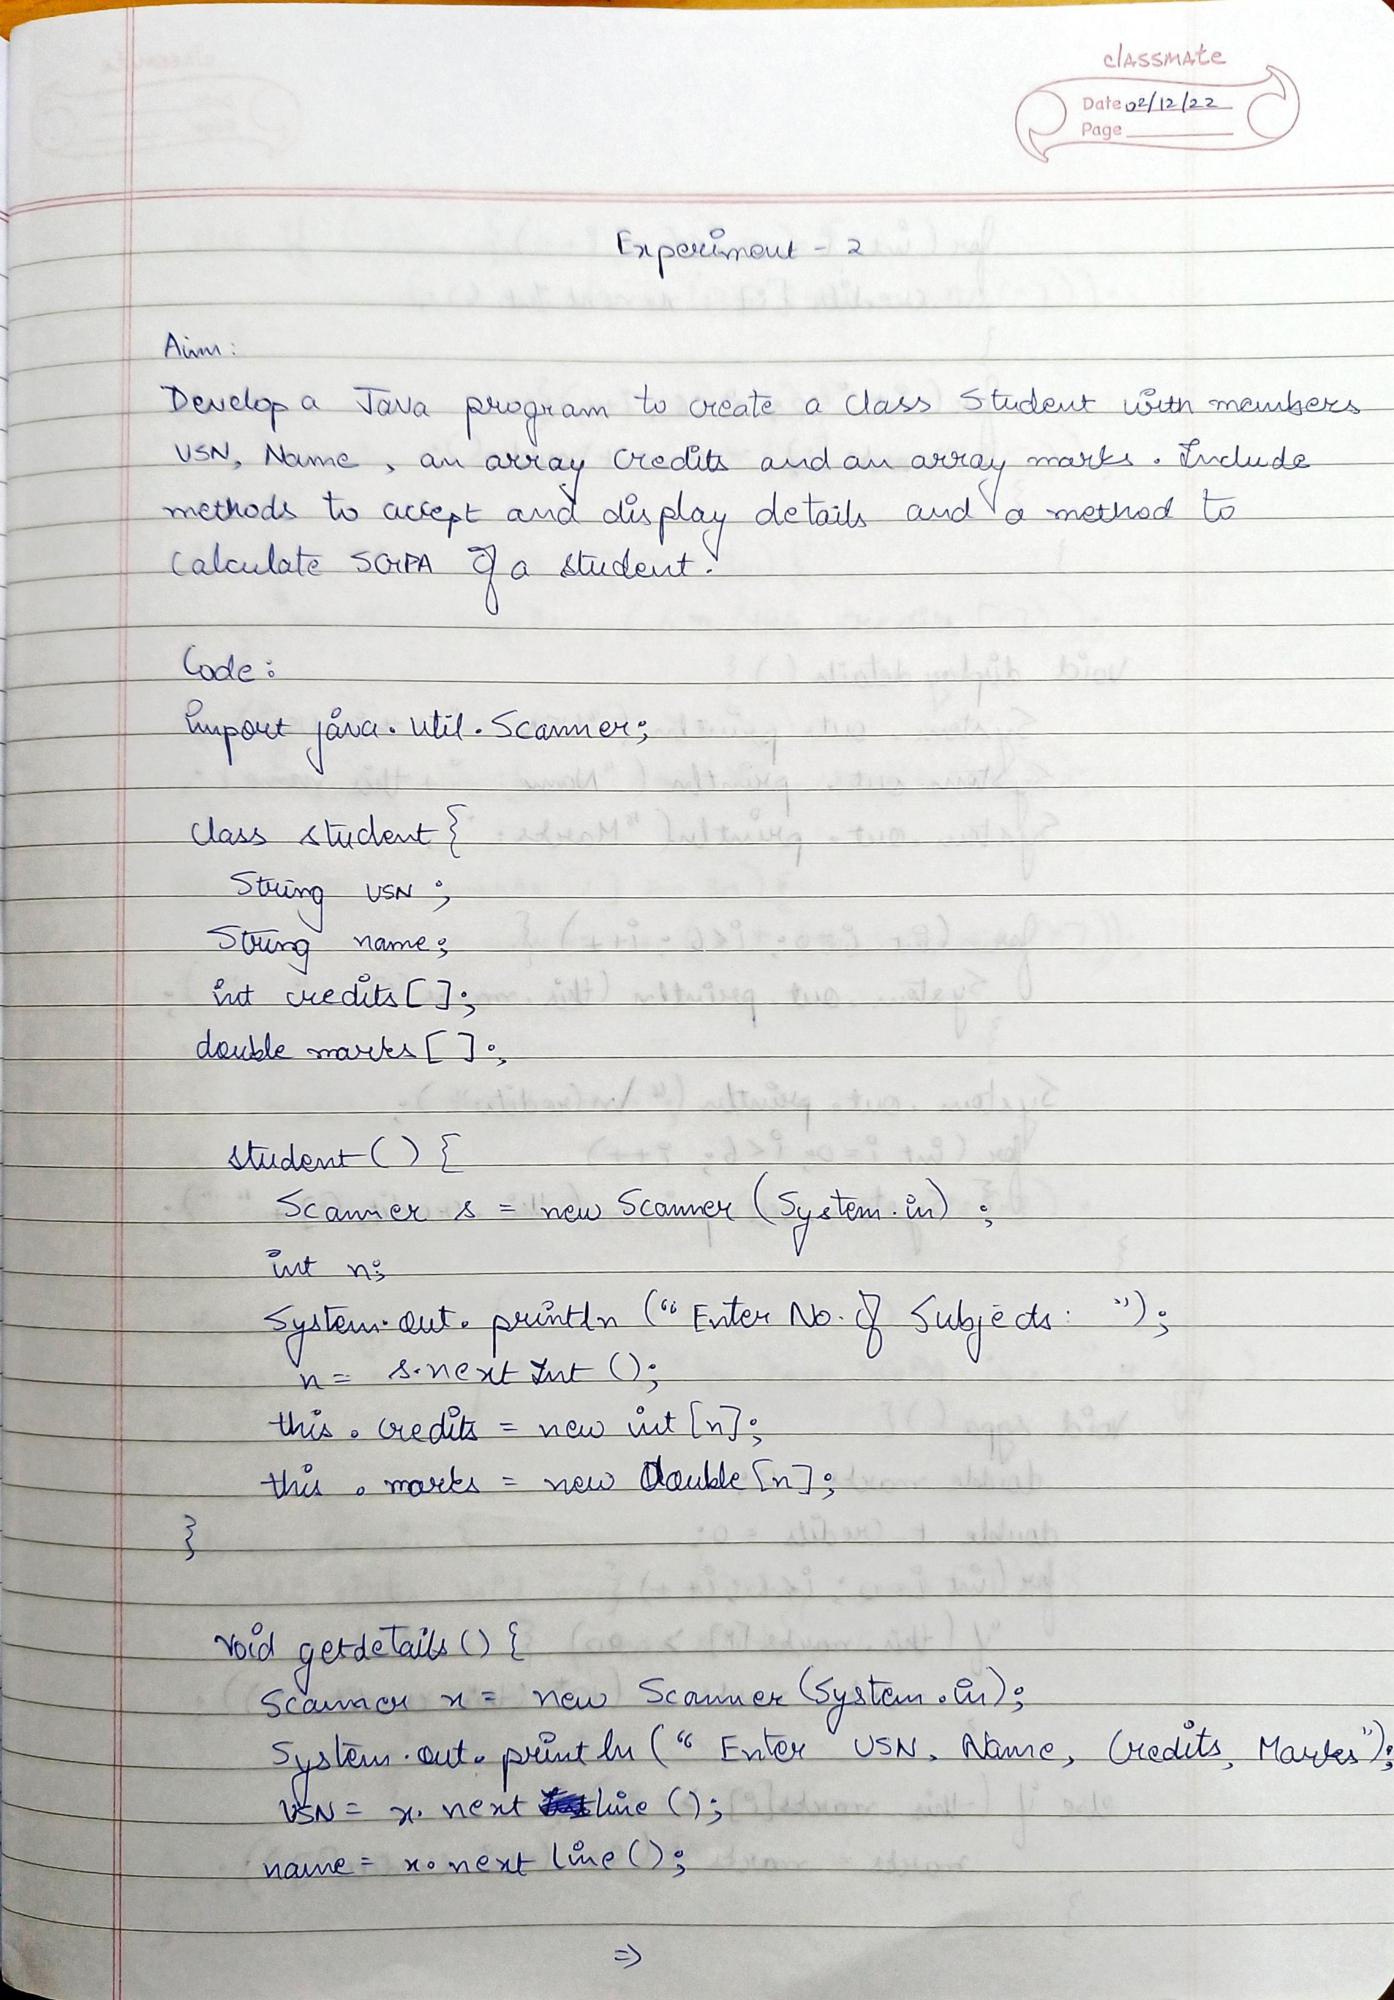 classmate
Date 02/12/22
Page
Experiment - 2
Aim:
Develop a Java program to create a class Student with members
USN, Name, an array credits and an array marks. Include
methods to accept and display details and a method to
calculate SGPA of a student.
Code:
import java.util.Scanner;
class student{
String USN;
String name;
int credits[];
double marks[];
student(){
Scanner s = new Scanner(System.in);
int n;
System.out.println("Enter No. of Subjects: ");
n = s.nextInt();
this.credits = new int[n];
this.marks = new Double[n];
}
void getdetails(){
Scanner x = new Scanner(System.in);
System.out.println("Enter USN, Name, Credits, Marks");
USN = x.next line();
name = x.next line();
=>